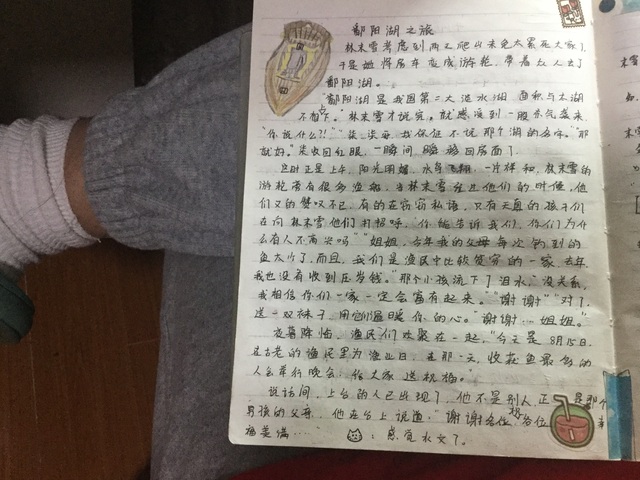 鄱阳湖之旅
林末雪考虑到两天爬山未免太累死大家了,
于是她将房车变成游轮,带着众人去了
鄱阳湖。
"鄱阳湖是我国第二大淡水湖 面积与太湖
不相上下。"林末雪才说完。就感受到一股杀气袭来
"你说什么?!""柒柒安,我保证不说那个湖的名字。""那
就好。"柒收回红眼,一瞬间 瞬移回房间了
这时正是上午,阳光明媚,水鸟飞翔,一片祥和,林末雪的
游轮旁有很多渔船,当林末雪经过他们的时候,他
们又的赞叹不已,有的在窃窃私语,只有天真的孩子们
在向林末雪他们打招呼,"你能告诉我们,你们为什
么有人不高兴吗""姐姐,今年我的父母每次钓到的
鱼太少了,而且,我们是渔民中比较贫穷的一家,去年
我也没有收到压岁钱。"那个小孩流下了泪水,"没关系,
我相信你们一家一定会富有起来。""谢谢""对了,
送一双袜子,用它们温暖你的心。""谢谢…姐姐。"
夜幕降临,渔民们欢聚在一起,"今天是8月15日,
在古老的渔民里为渔业日,在那一天,收获鱼最多的
人会举行晚会,给大家送祝福。"
说话间,上台的人已出现了,他不是别人正 是那个
男孩的父母,他在台上说道:"谢谢各位 各位
福美满……
:感觉水文了。